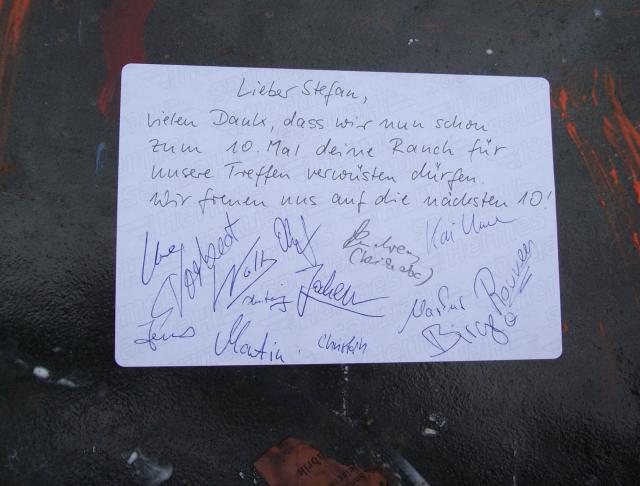 Lieber Stefan,
vielen Dank, dass wir nun schon
zum 10. Mal deine Ranch für
unsere Treffen verwüsten dürfen.
Wir freuen uns auf die nächsten 10!
Kai Uwe
Uwe
Olaf
Jochen
Jens
Martin
Christoph
Markus
Birgit